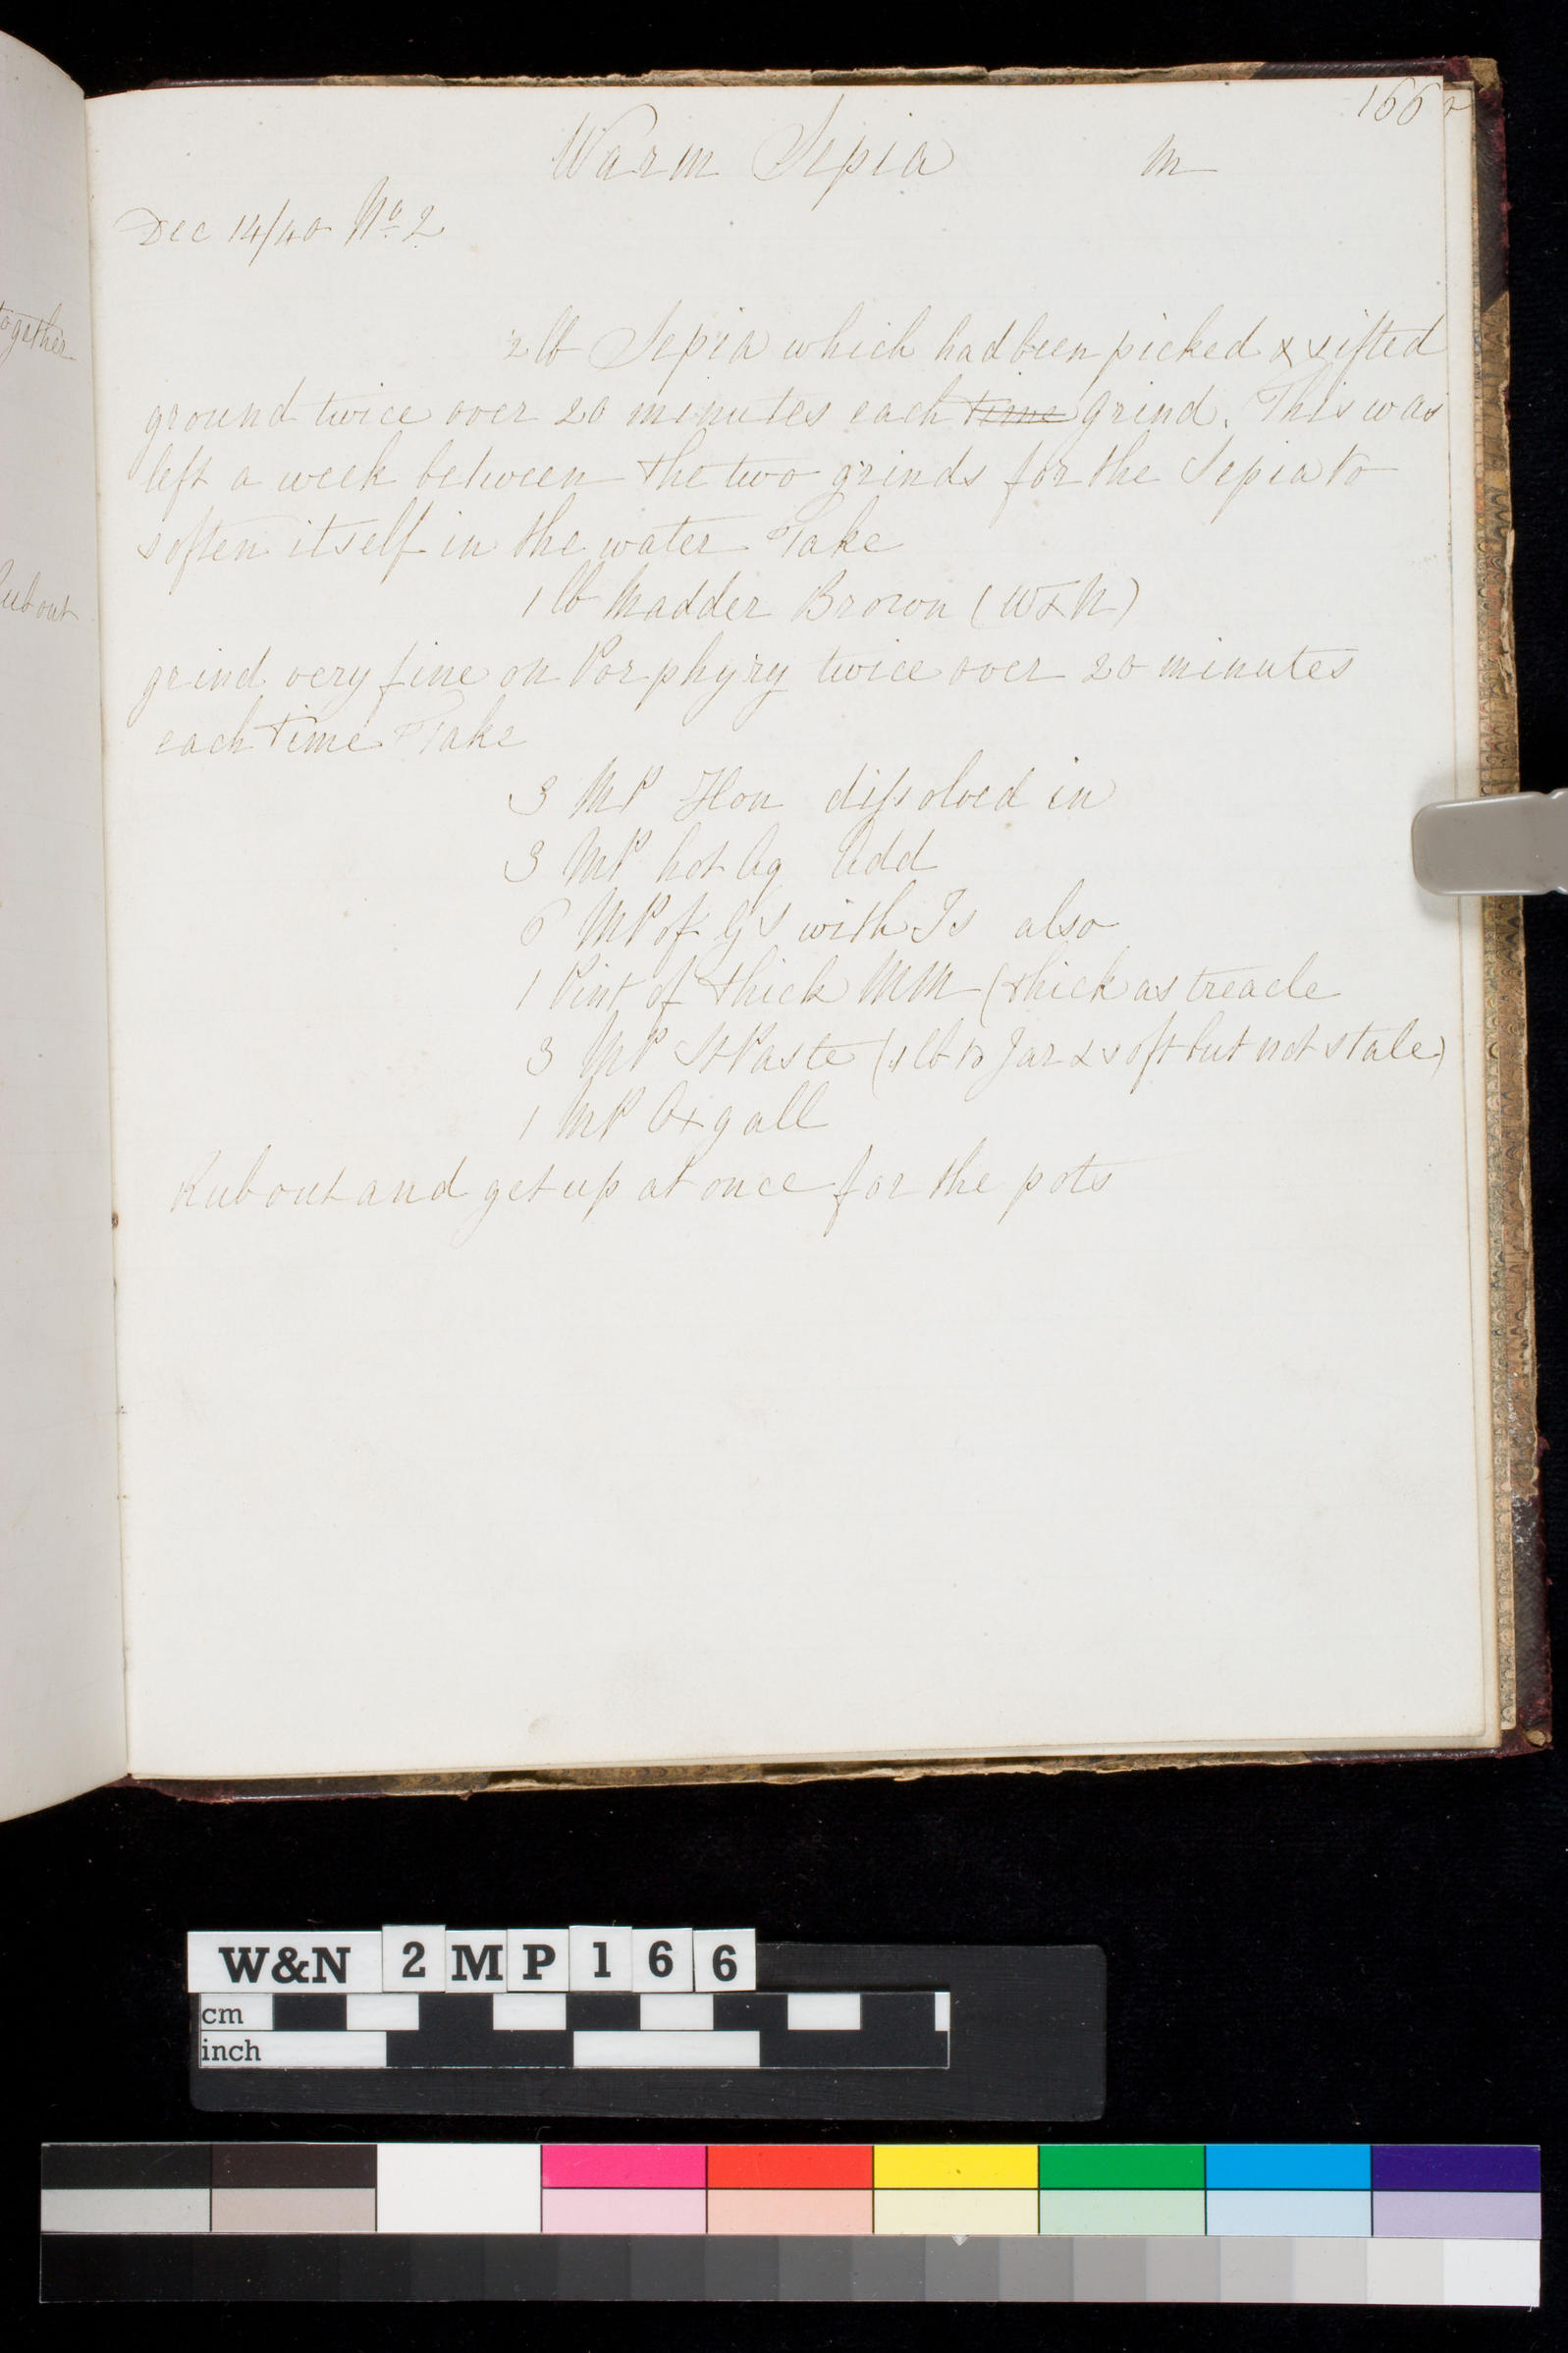 166
Warm Sepia M
Dec 14/40 No. 2
2 lb Sepia which had been picked & sifted
ground twice over 20 minutes each time grind. This was
left a week between the two grinds for the Sepia to
soften itself in the water Take
1 lb Madder Brown (W&N)
grind very fine on Porphyry twice over 20 minutes
each time Take
3 MP Hon dissolved in
3 MP hot Aq Add
6 MP of GS with Is also
1 Pint of thick MM (thick as treacle
3 MP StPaste (1 lb to Jar & soft but not stale)
1 MP Oxgall
Rub out and get up at once for the pots
together
Rub out
W&N 2MP166
cm
inch